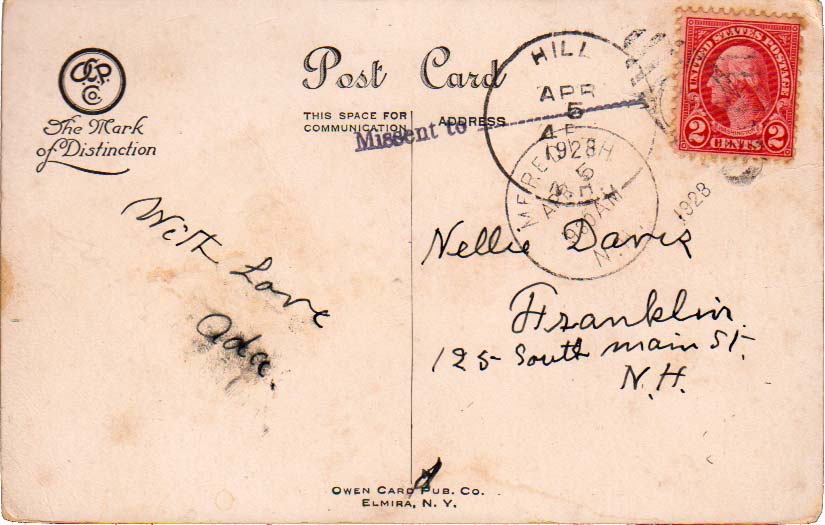 O.C.P.
Co.
The Mark
of Distinction
Post Card
THIS SPACE FOR
COMMUNICATION
ADDRESS
Missent to
HILL
APR
5
1928
N.H.
5
930AM
N.
1928
UNITED STATES POSTAGE
2 CENTS 2
With Love
Ada.
Nellie Davis
Franklin.
125 South main St.
N.H.
OWEN CARD PUB. CO.
ELMIRA, N. Y.